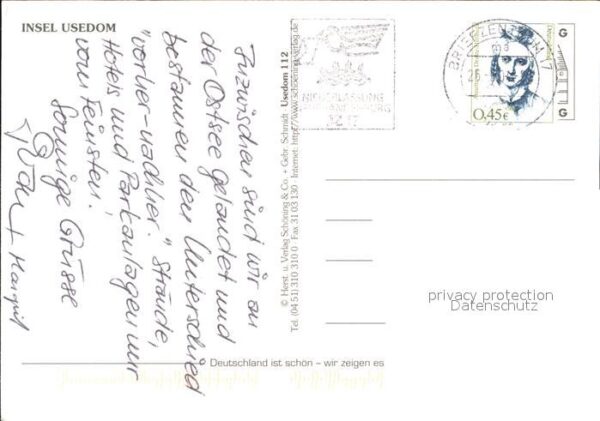 INSEL USEDOM
Inzwischen sind wir an
der Ostsee gelandet und
bestaunen den Unterschied
"vorher-nachher." Strände,
Hotels und Parkanlagen nur
vom Feinsten!
Sonnige Grüsse
+ Margrit
© Herst. u. Verlag Schöning & Co. + Gebr. Schmidt Usedom 112
Tel. (04 51) 310 310 0 · Fax 31 03 130 · Internet: http://www.schoening-verlag.de
Deutschland ist schön – wir zeigen es
NIEDERLASSUNG
BRIEFZENTRUM 17
0,45€
G
G
privacy protection
Datenschutz